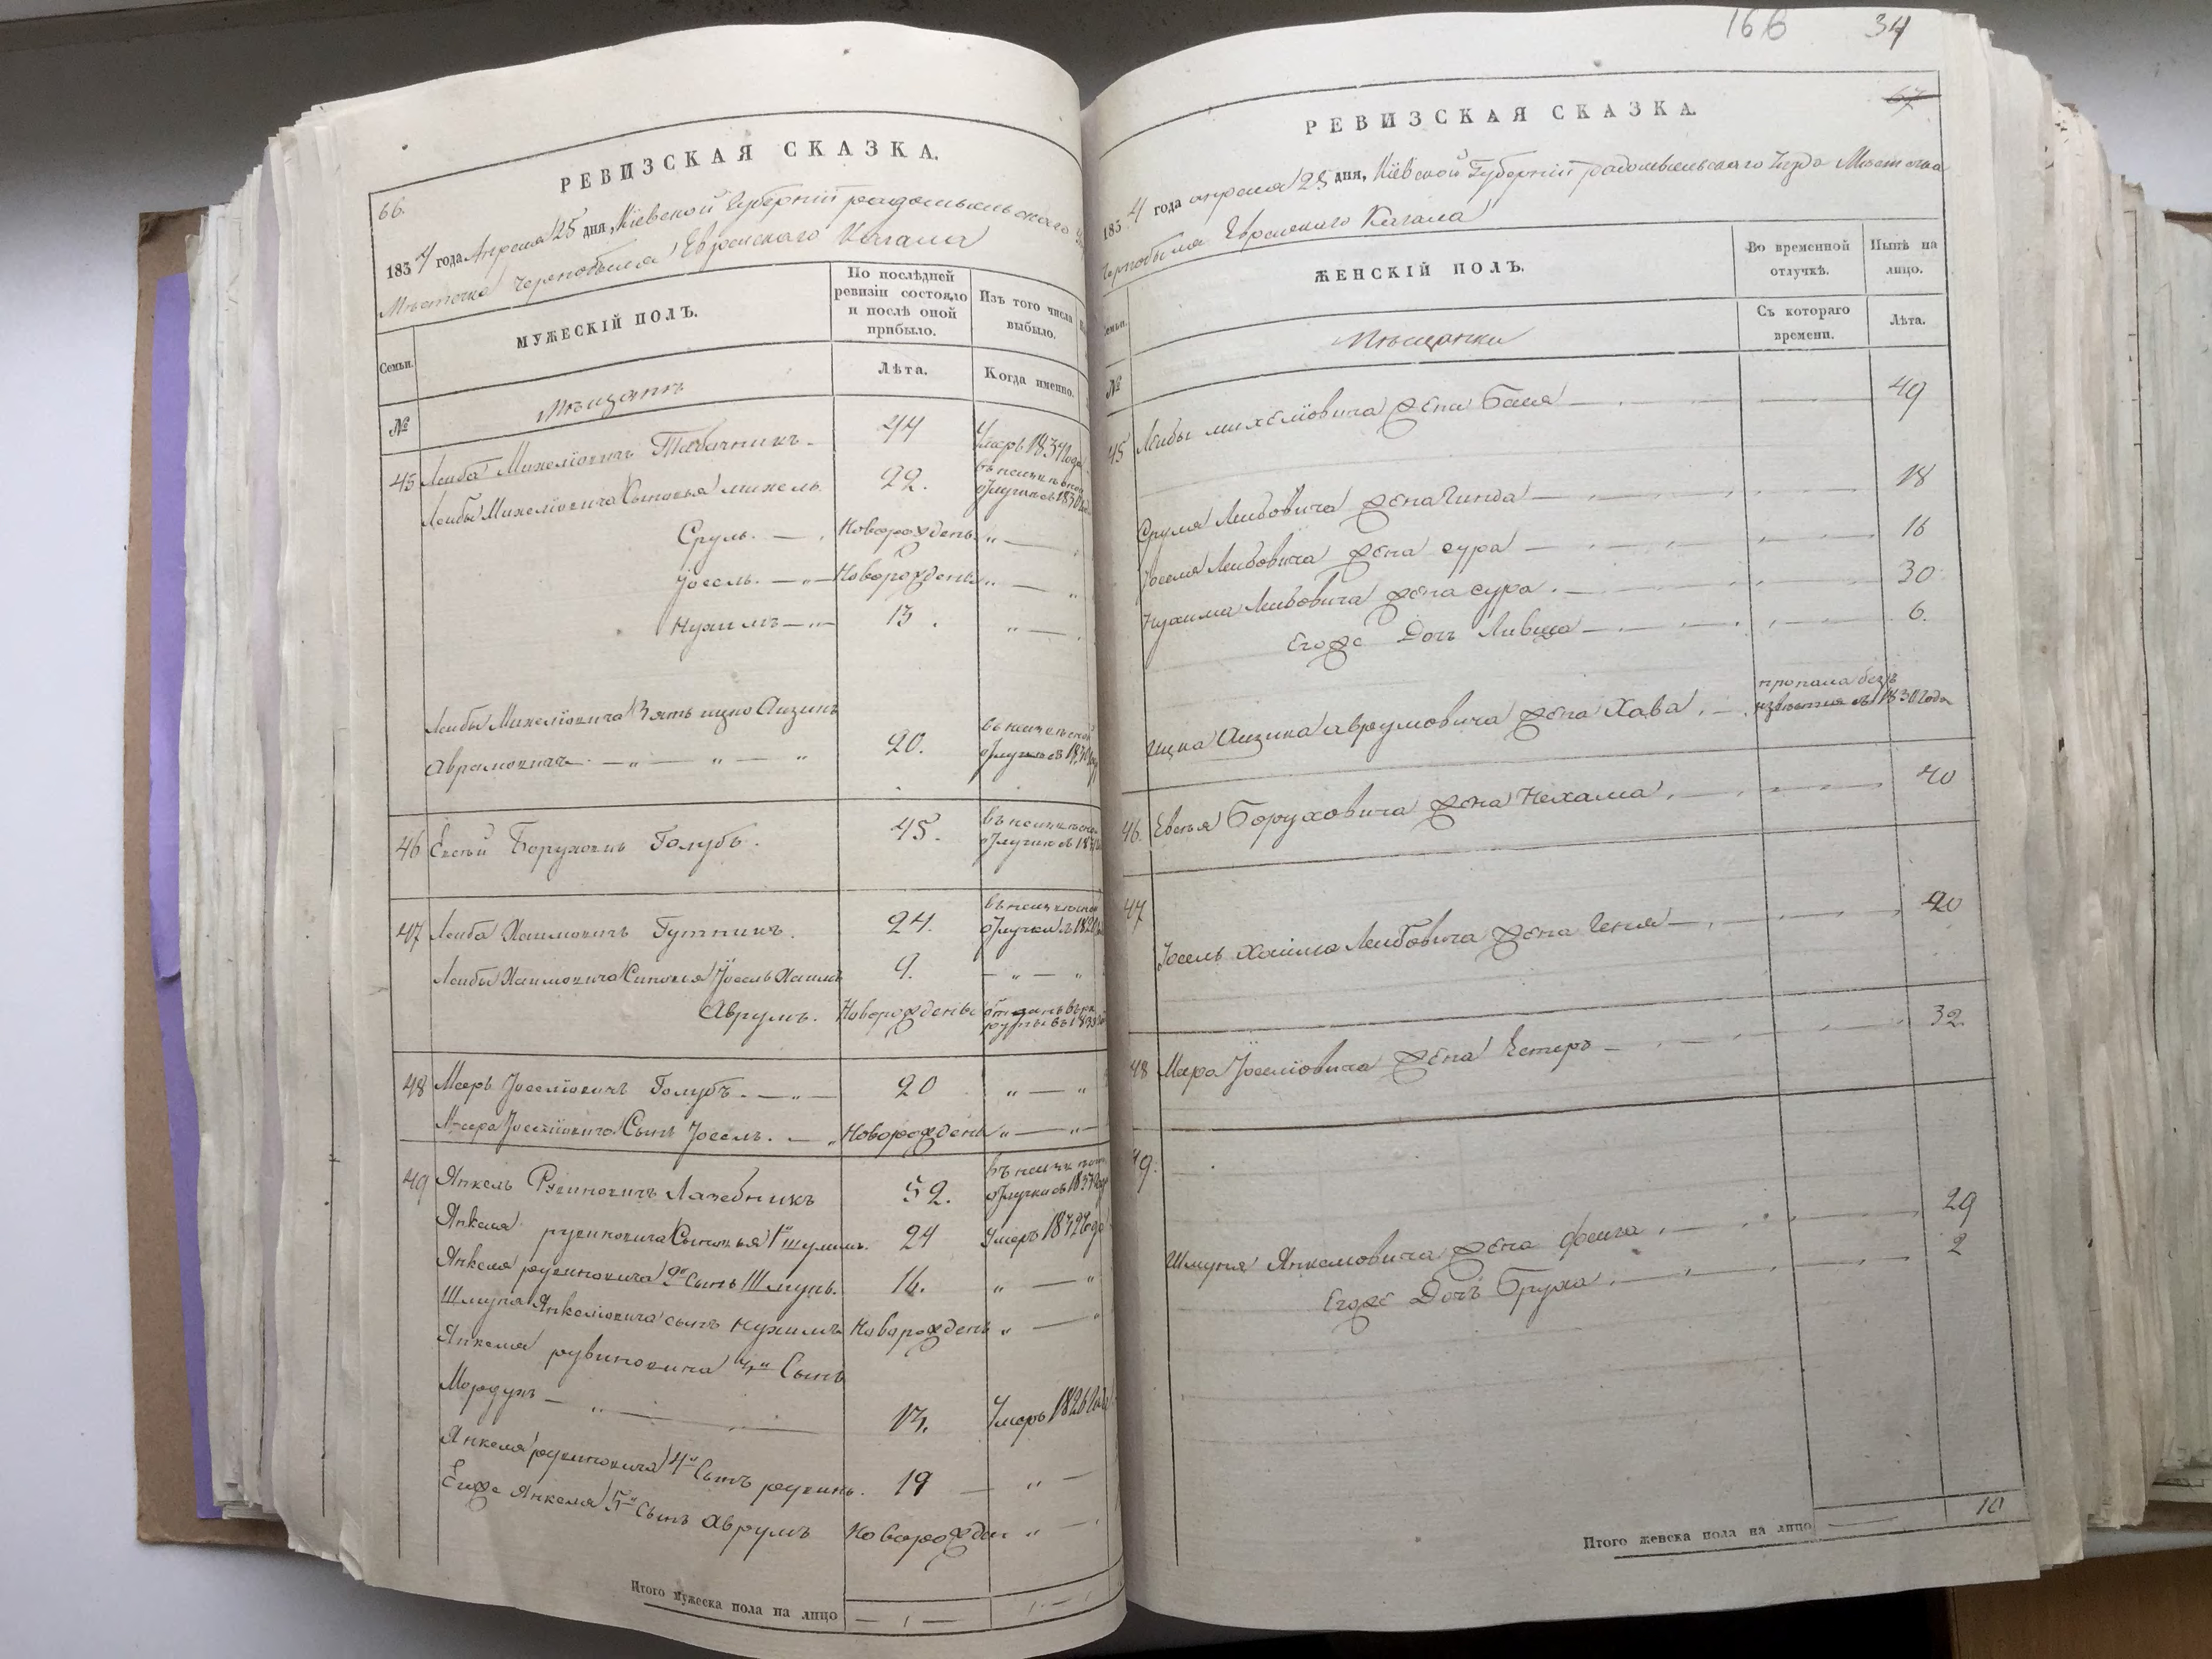 66.
РЕВИЗСКАЯ СКАЗКА.
1834 года Апреля 25 дня, Кіевской Губерніи радомысльскаго
Местечка Чернобыля Еврейскаго Кагала
Семьи.
МУЖЕСКІЙ ПОЛЪ.
По послѣдней ревизіи состояло и послѣ оной прибыло.
Изъ того числа выбыло.
Лѣта.
Когда именно.
№
Мещанъ
45 Лейба Михелiовичъ Табачникъ 44 Умеръ 1834 года
Лейбы Михелiовича Сыновья Михель. 22.
Сруль. Новорожденъ
Іосель. Новорожденъ
Нухимъ 13.
Лейбы Михелiовича Зять Ицко Айзикъ
Аврамовичъ 20.
46 Евсѣй Боруховичъ Голубъ. 45.
47 Лейба Хаимовичъ Гутникъ. 24.
Лейбы Хаимовича Сыновья Іосель Хаимъ 9.
Аврумъ. Новорожденъ
48 Мееръ Іоселiовичъ Голубъ. 20
Меера Іоселiовича Сынъ Іосель. Новорожденъ
49 Янкель Рувиновичъ Лазебникъ 52.
Янкеля рувиновича Сыновья 1й шулимъ. 24 Умеръ 1832 года
Янкеля рувиновича 2й Сынъ Шмунь. 16.
Шмуня Янкелiовича сынъ нухимъ Новорожденъ
Янкеля рувиновича 3й Сынъ
Мордухъ 13. Умеръ 1826 года
Янкеля рувиновича 4й Сынъ рувинъ. 19
Егоже Янкеля 5й Сынъ аврумъ Новорожден
Итого мужеска пола на лицо
166 34
67
РЕВИЗСКАЯ СКАЗКА.
1834 года апреля 25 дня, Кіевской Губерніи радомысльскаго уезда Местечка
Чернобыля Еврейскаго Кагала
Семьи.
ЖЕНСКІЙ ПОЛЪ.
Во временной отлучкѣ.
Нынѣ на лицо.
Съ котораго времени.
Лѣта.
№
Мещанки
45 Лейбы михелiовича жена Бася 49
Сруля Лейбовича жена Гинда 18
Іоселя Лейбовича жена сура 16
Нухима Лейбовича жена сура. 30
Егоже Дочь Ливша 6.
Ицка Айзика аврумовича жена Хава. пропала безъ известия съ 1830 года
46. Евсѣя Боруховича жена Нехама. 40
47
Іосель Хаима Лейбовича жена Геня 20
48 Меера Іоселiовича жена Естеръ 32
49.
Шмуня Янкелiовича жена фейга. 29
Егоже Дочь Бруха. 2
Итого женска пола на лицо 10